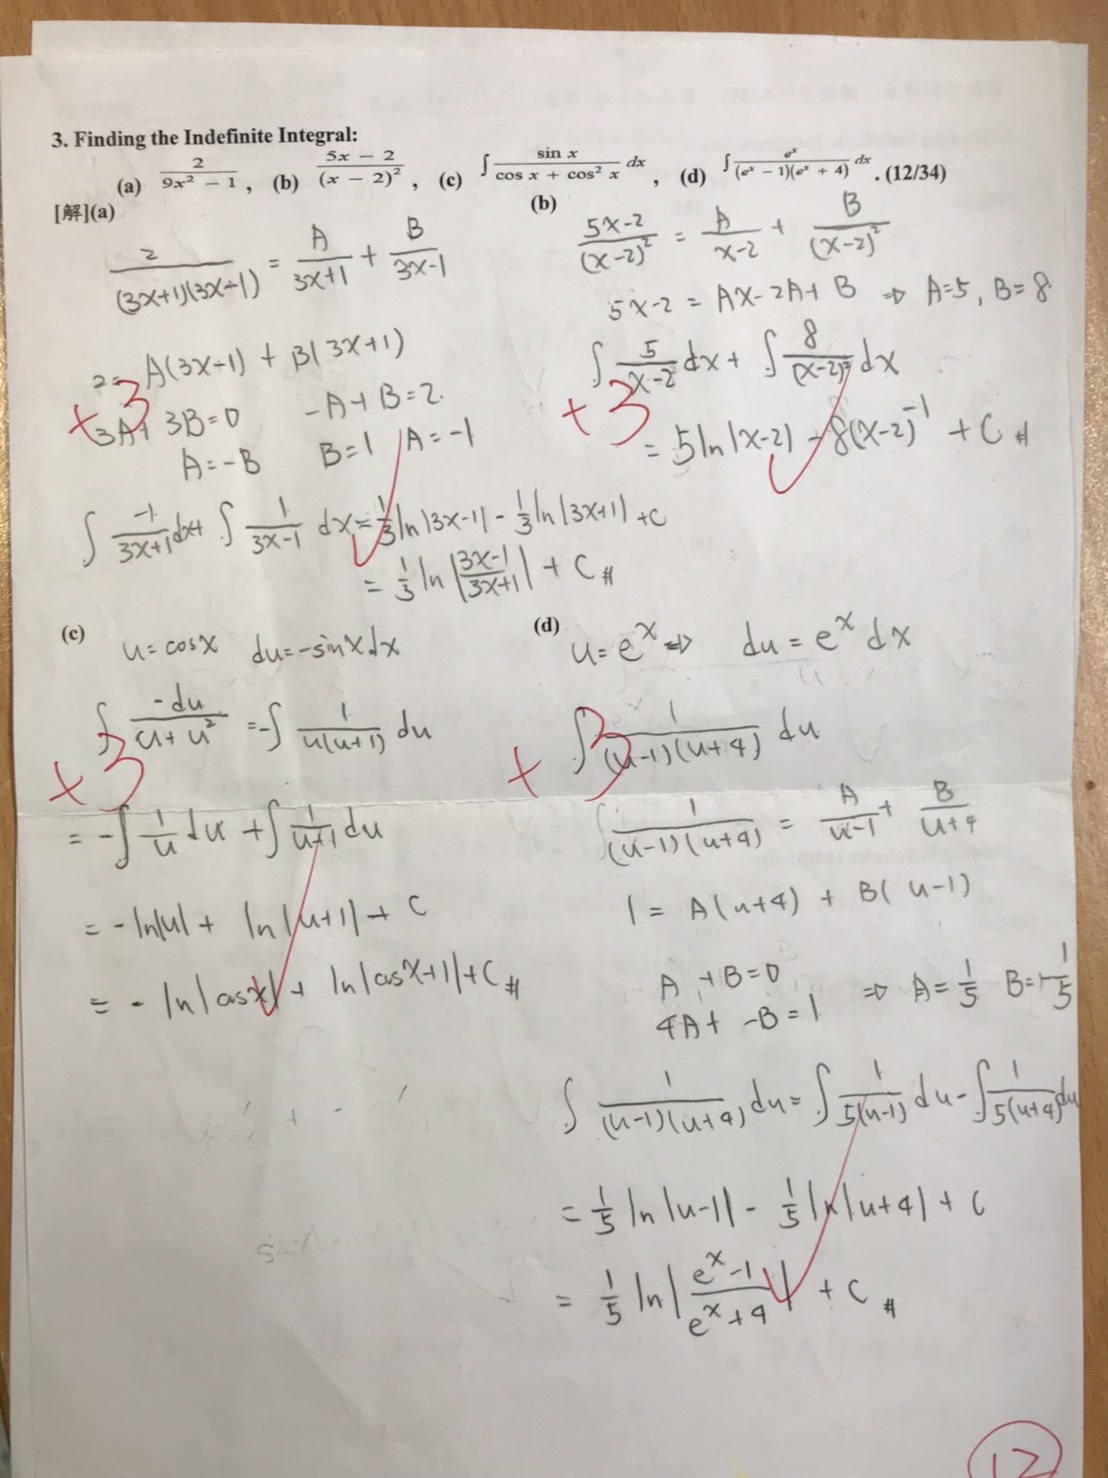 3. Finding the Indefinite Integral:
(a) 2/(9x² − 1), (b) (5x − 2)/(x − 2)², (c) ∫ sin x/(cos x + cos² x) dx, (d) ∫ eˣ/((eˣ − 1)(eˣ + 4)) dx. (12/34)
[解](a)
2/((3x+1)(3x-1)) = A/(3x+1) + B/(3x-1)
2= A(3x-1) + B(3x+1)
+3
3A+3B=0 -A+B=2
A=-B B=1 A=-1
∫ -1/(3x+1) dx+ ∫ 1/(3x-1) dx = 1/3 ln|3x-1| - 1/3 ln|3x+1| +C
= 1/3 ln|(3x-1)/(3x+1)| + C #
(b)
(5x-2)/(x-2)² = A/(x-2) + B/(x-2)²
5x-2 = Ax-2A+B ⇒ A=5, B=8
∫ 5/(x-2) dx + ∫ 8/(x-2)² dx
+3
= 5ln|x-2| - 8(x-2)⁻¹ + C #
(c)
u=cosx du=-sinxdx
∫ -du/(u+u²) = -∫ 1/(u(u+1)) du
+3
= -∫ 1/u du + ∫ 1/(u+1) du
= -ln|u| + ln|u+1| + C
= -ln|cosx| + ln|cosx+1| + C #
(d)
u=eˣ ⇒ du = eˣ dx
∫ 1/((u-1)(u+4)) du
+3
∫ 1/((u-1)(u+4)) = A/(u-1) + B/(u+4)
1 = A(u+4) + B(u-1)
A + B = 0
4A + -B = 1 ⇒ A=1/5 B=-1/5
∫ 1/((u-1)(u+4)) du = ∫ 1/(5(u-1)) du - ∫ 1/(5(u+4)) du
= 1/5 ln|u-1| - 1/5 ln|u+4| + C
= 1/5 ln|(eˣ-1)/(eˣ+4)| + C #